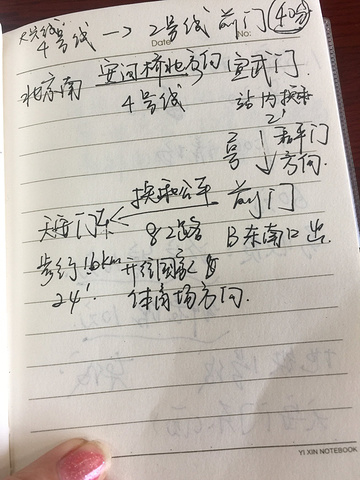 大兴线
4号线 → 2号线 前门 40分
Date No:
北京南 安河桥北方向 宣武门
4号线 站内换乘
2'
2号 ↓ 和平门
方向.
天安门东 ← 换乘公平 前门
82路 B东南口出
步行1.6km 开往国家
24'. 体育场方向.
YI XIN NOTEBOOK